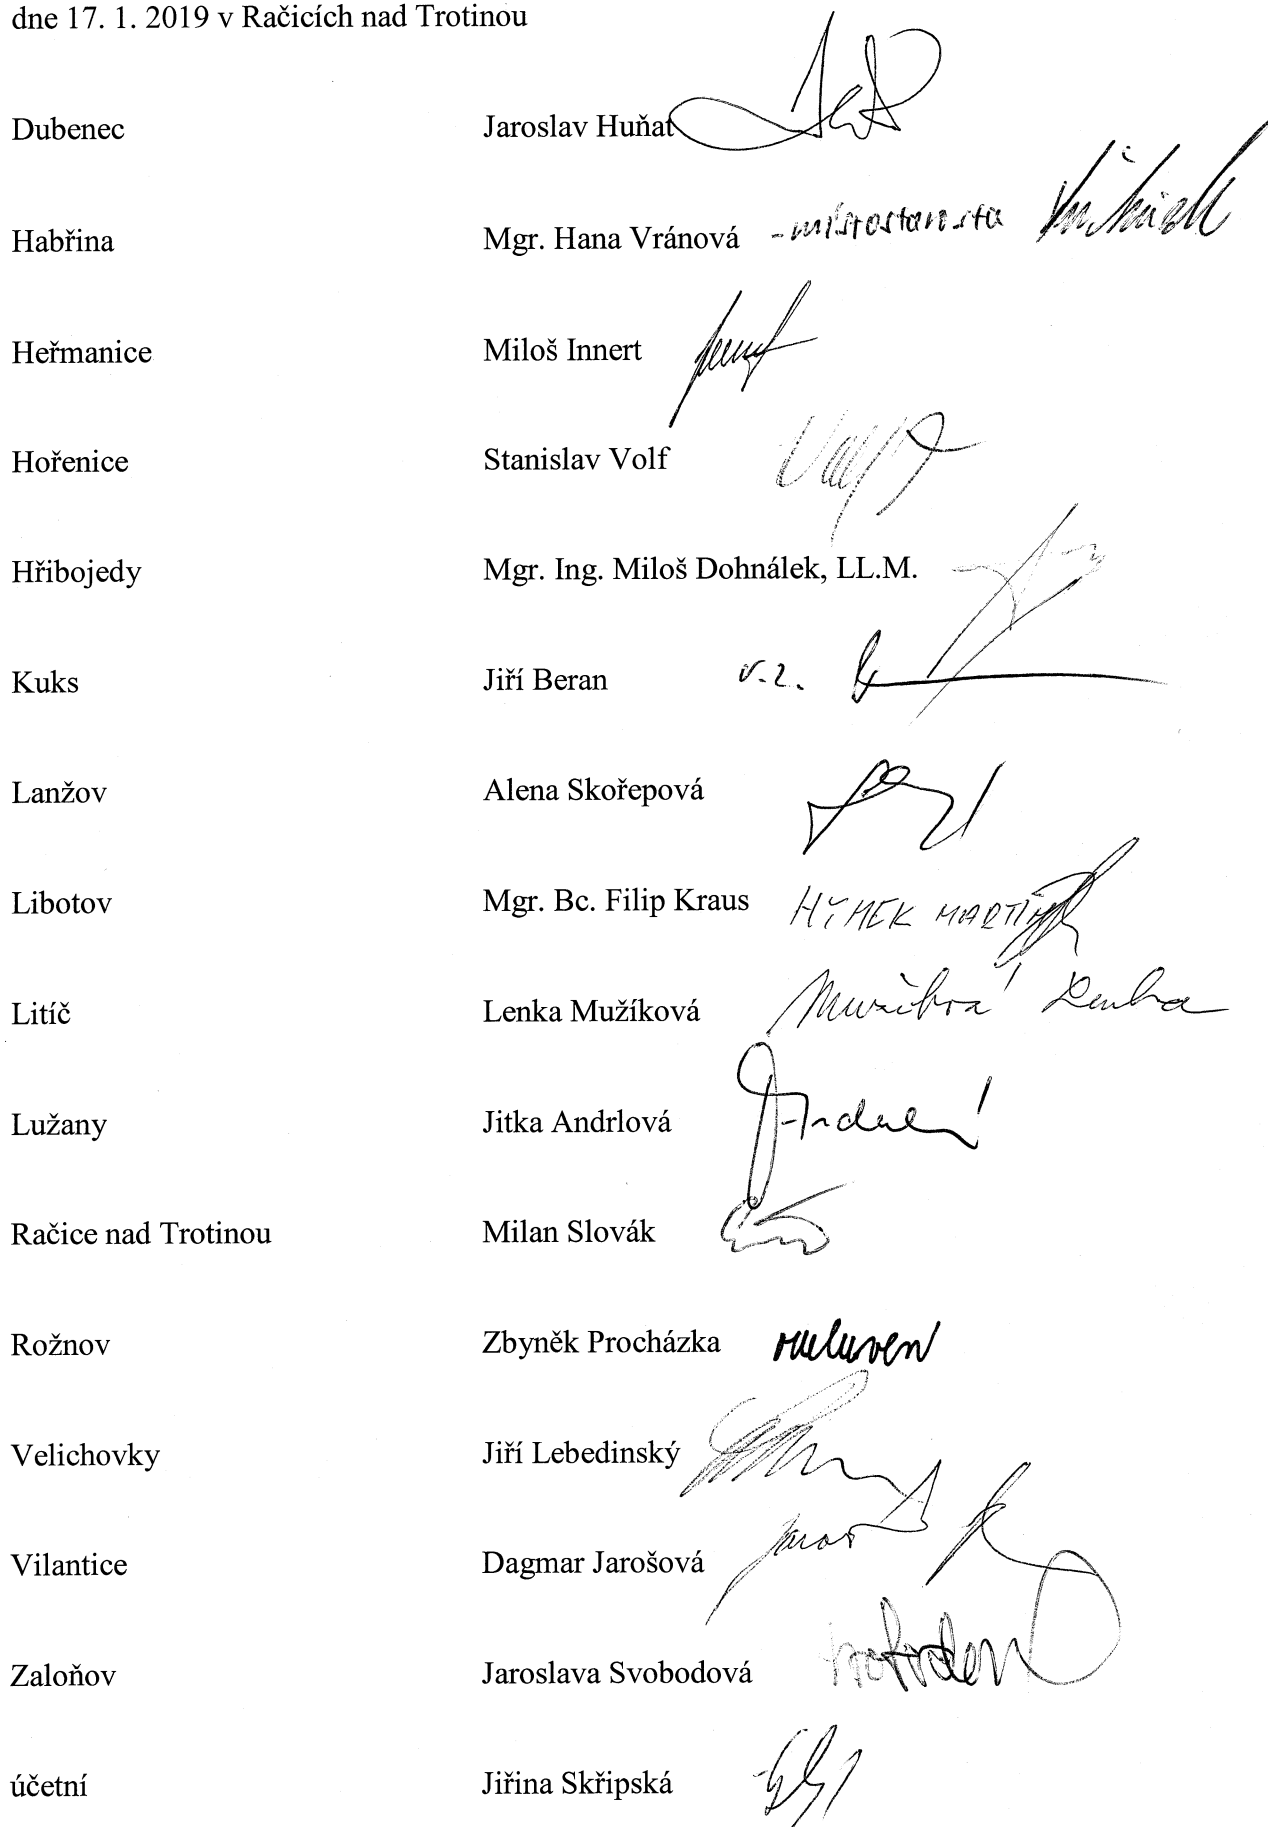 dne 17. 1. 2019 v Račicích nad Trotinou
Dubenec Jaroslav Huňat
Habřina Mgr. Hana Vránová - místostarosta
Heřmanice Miloš Innert
Hořenice Stanislav Volf Volf
Hřibojedy Mgr. Ing. Miloš Dohnálek, LL.M.
Kuks Jiří Beran v.z.
Lanžov Alena Skořepová
Libotov Mgr. Bc. Filip Kraus HYNEK MARTIN
Litíč Lenka Mužíková Mužíková Lenka
Lužany Jitka Andrlová
Račice nad Trotinou Milan Slovák
Rožnov Zbyněk Procházka omluven
Velichovky Jiří Lebedinský
Vilantice Dagmar Jarošová
Zaloňov Jaroslava Svobodová
účetní Jiřina Skřipská